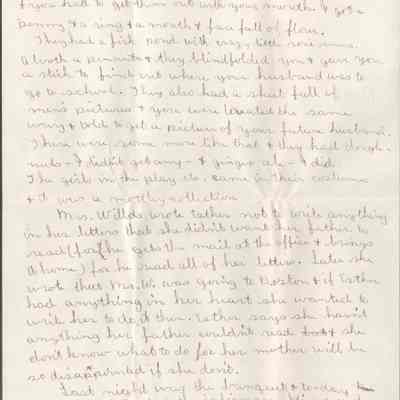 & you had to get them out with your mouth. I got a
penny & a ring & a mouth & face full of flour.
They had a fish pond with crazy little souvenirs.
worth a penny & they blindfolded you & gave you
a stick to find out where your husband was to
go to school. They also had a sheet full of
men's pictures & you were treated the same
way & told to get a picture of your future husband.
There were some more like that & they had dough-
nuts - I didn't get any - & ginger ale - I did.
The girls in the play etc. came in their costumes
& it was a motley collection.
Mrs. Willds wrote Esther not to write anything
in her letters that she didn't want her father to
read (for he gets the mail at the office & brings
it home) for he read all of her letters. Later she
wrote that Mr. W. was going to Boston & if Esther
had anything in her heart she wanted to
write her to do it then. Esther says she hasn't
anything her father couldn't read & she
don't know what to do for her mother will be
so disappointed if she don't.
Last night was the banquet & to-day